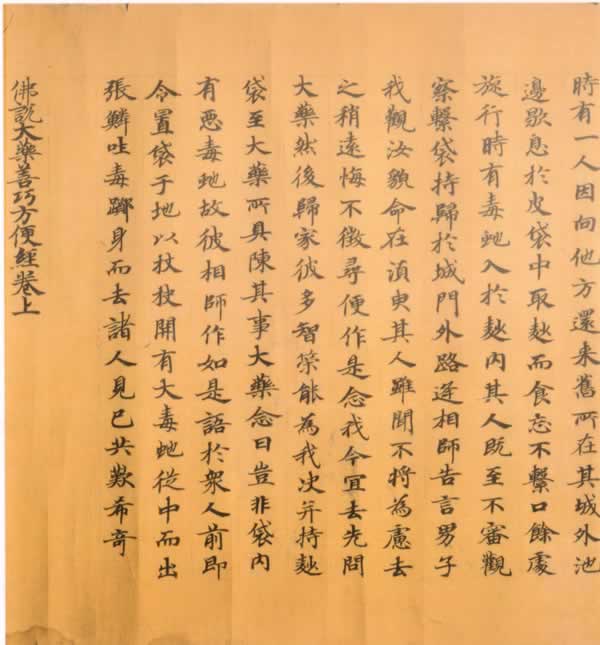 時有一人因向他方還来舊所在其城外池
邊歇息於皮袋中取麨而食忘不繫口餘處
旋行時有毒虵入於麨內其人既至不審觀
察繫袋持歸於城門外路逢相師告言男子
我觀汝貌命在湏臾其人雖聞不将為慮去
之稍遠悔不徵尋便作是念我今宜去先問
大藥然後歸家彼多智策能為我决并持麨
袋至大藥所具陳其事大藥念曰豈非袋内
有惡毒虵故彼相師作如是語於衆人前即
令置袋于地以杖抉開有大毒虵從中而出
張鱗吐毒躑身而去諸人見已共歎希奇
佛說大藥善巧方便經卷上